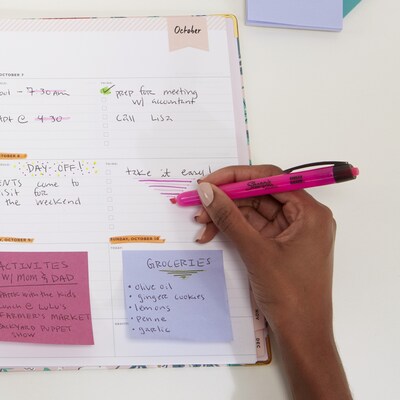 October
OCTOBER 7
7:30AM
@ 4:30
prep for meeting
w/ accountant
call Lisa
OCTOBER 8
DAY OFF!
come to
visit for
the weekend
take it easy!
Sharpie
SUNDAY, OCTOBER 10
ACTIVITES
W/ MOM & DAD
with the kids
@ LuLu's
FARMER'S MARKET
BACKYARD PUPPET
SHOW
GROCERIES
• olive oil
• ginger cookies
• lemons
• penne
• garlic
DEC